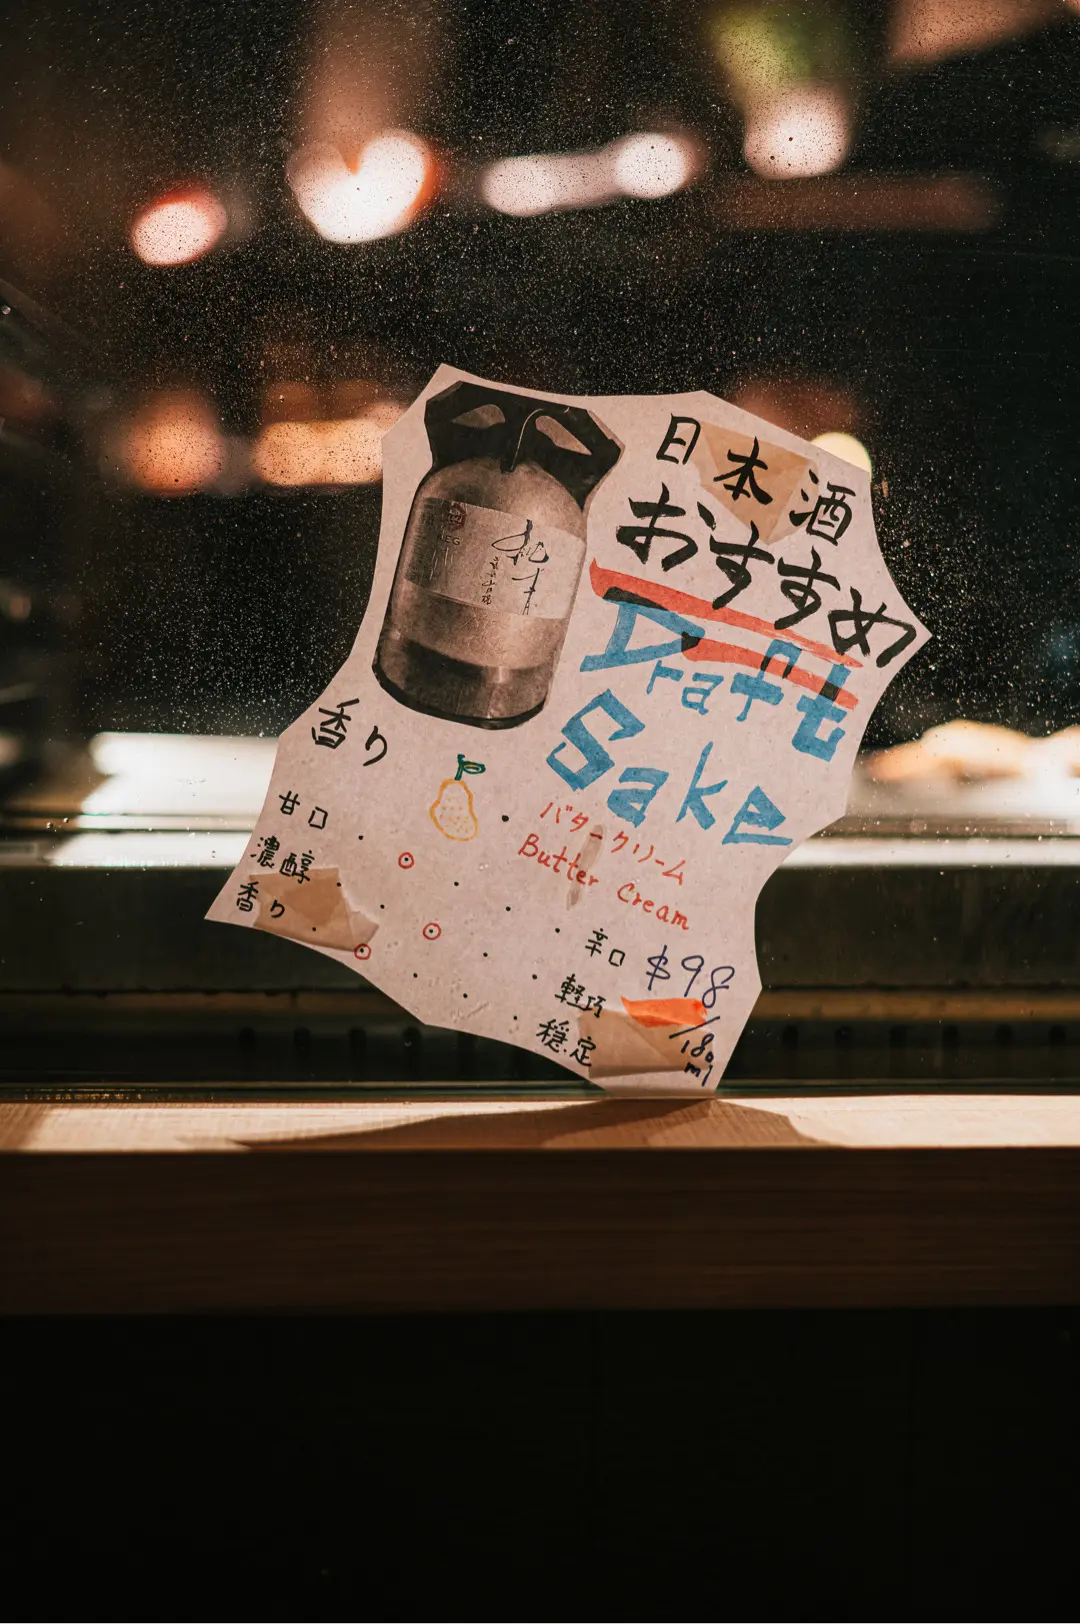 日本酒
おすすめ
Draft
Sake
香り
バタークリーム
Butter Cream
甘口
辛口
濃醇
軽巧
香り
穏定
$98
/180
ml